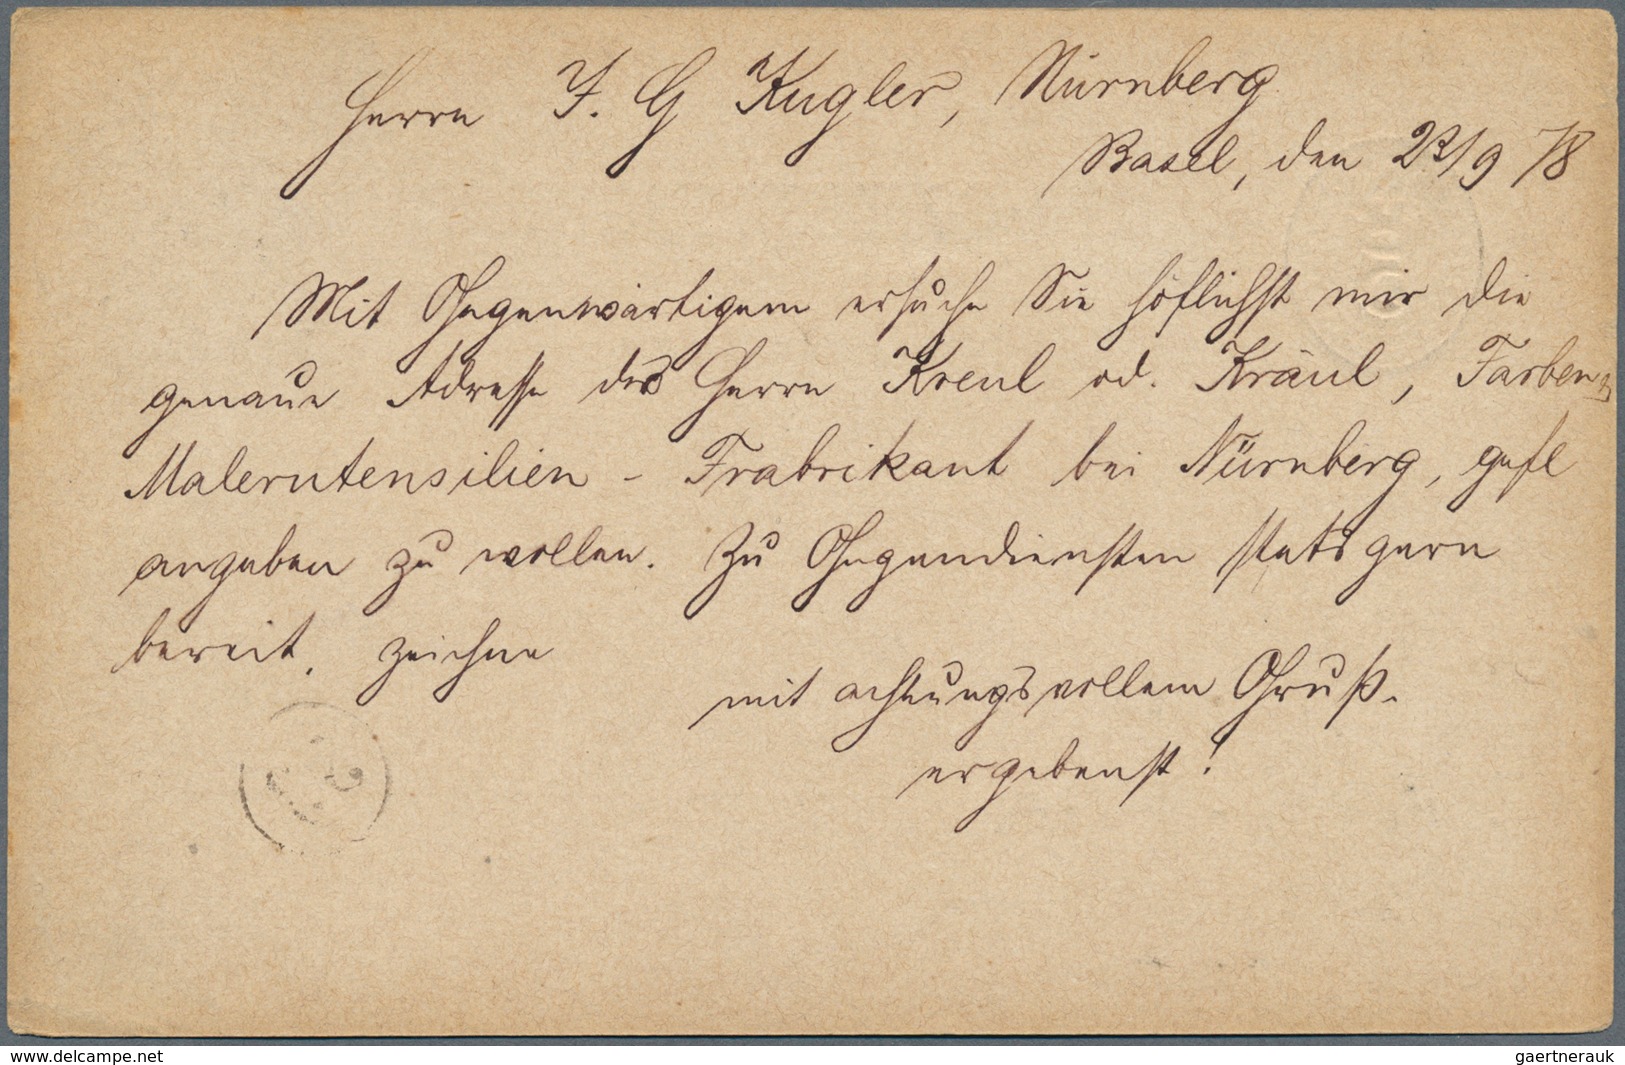 Herrn J. G Kugler, Nürnberg
Basel, den 23/9 78
Mit Gegenwärtigem ersuche Sie höflichst mir die
genaue Adresse des Herrn Kreul od. Kräul, Farben &
Malerutensilien - Frabrikant bei Nürnberg, gefl
angeben zu wollen. Zu Gegendiensten stets gern
bereit, zeichne
mit achtungsvollem Gruß.
ergebenst!
www.delcampe.net
gaertnerauk